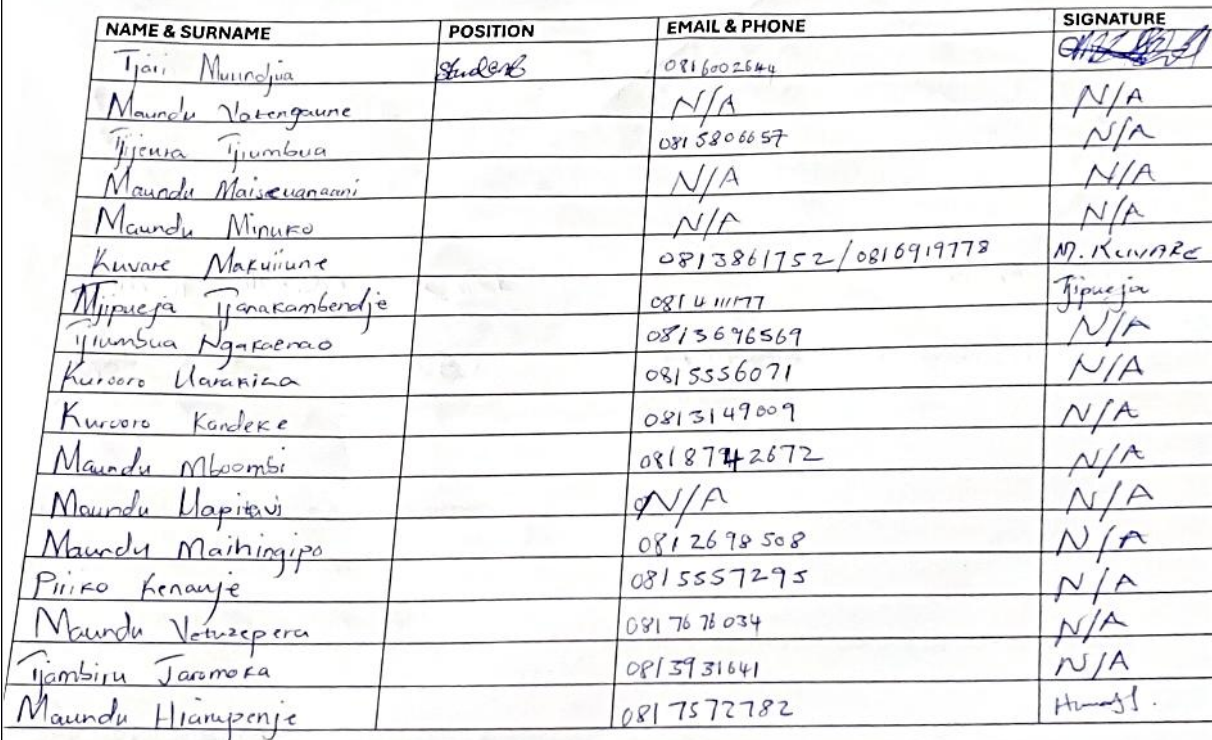 NAME & SURNAME POSITION EMAIL & PHONE SIGNATURE
Tjari Muundjua Student 0816002644
Maundu Vatengaune N/A N/A
Tjijeura Tjiumbua 0815806657 N/A
Maundu Maiseuanaani N/A N/A
Maundu Minuko N/A N/A
Kuvare Makuiiune 0813861752/0816919778 M. KUVARE
Mjipueja Tjanakambendje Tjipueja
Tjiumbua Ngakaenao 0813696569 N/A
Kurooro Uarakiza 0815556071 N/A
Kurooro Kandeke 0813149009 N/A
Maundu Mboombi 0818742672 N/A
Maundu Uapitavi N/A N/A
Maundu Maihingipo 0812698508 N/A
Piriko Kenauje 0815557295 N/A
Maundu Vetuzepera 0817676034 N/A
Tjambiru Jaromoka 0813931641 N/A
Maundu Hiarupenje 0817572782